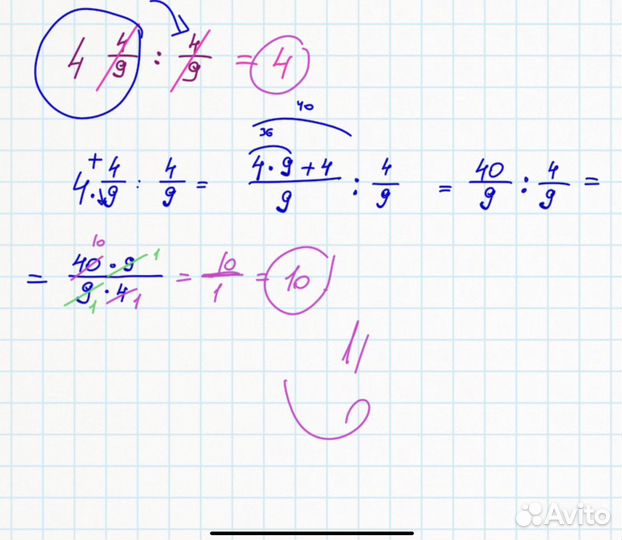 4 4/9 : 4/9 = 4
40
36
4 · + 4/9 : 4/9 = (4 · 9 + 4)/9 : 4/9 = 40/9 : 4/9 =
10
= (40 · 9)/(9 · 4) = 10/1 = 10
1
1 1
Avito